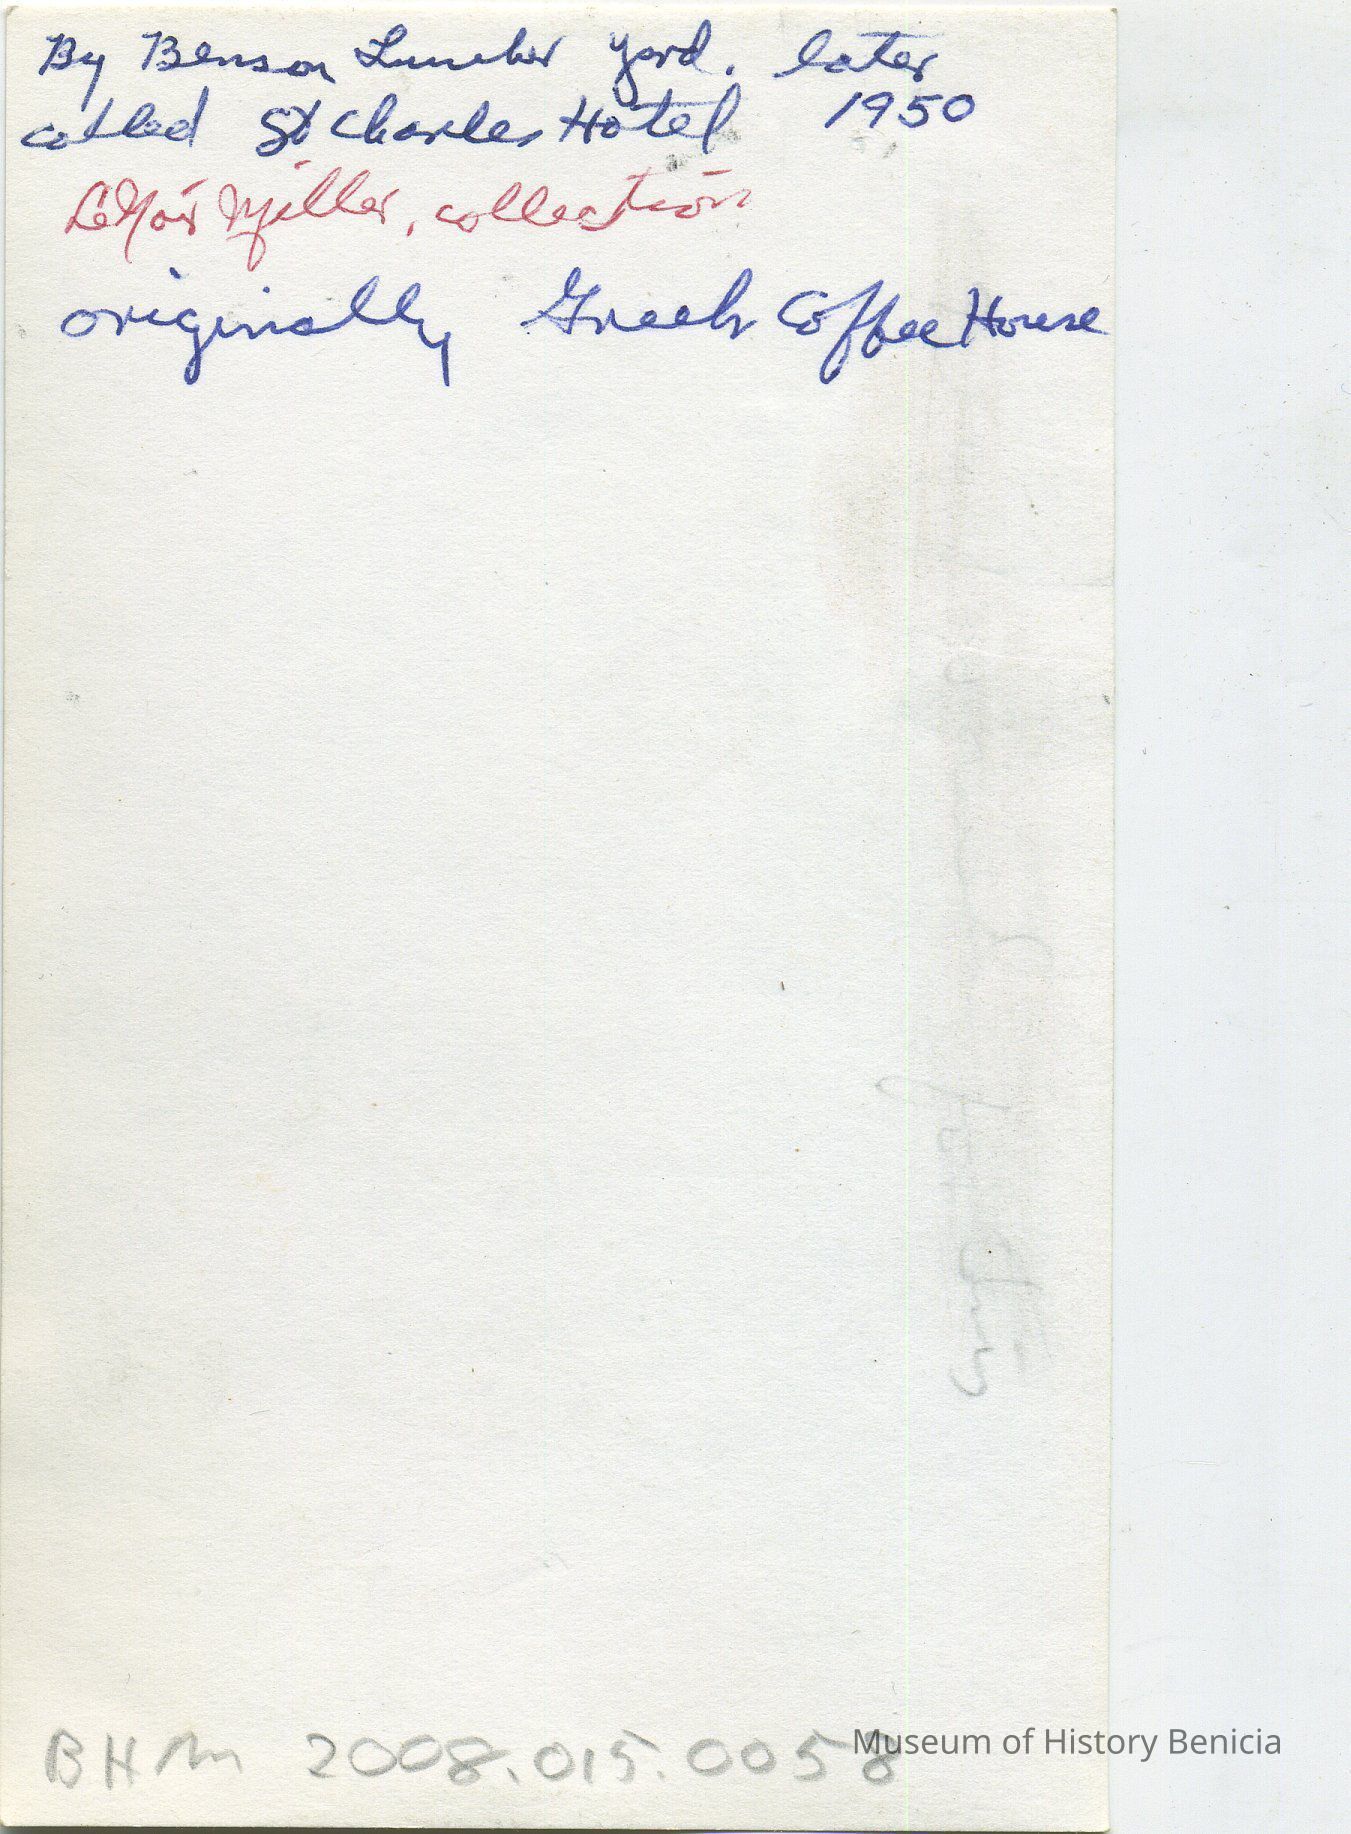 By Benson Lumber Yard. later
called St Charles Hotel 1950
LeNoir Miller, collection
originally Greek Coffee House
BHM 2008.015.0058
Museum of History Benicia